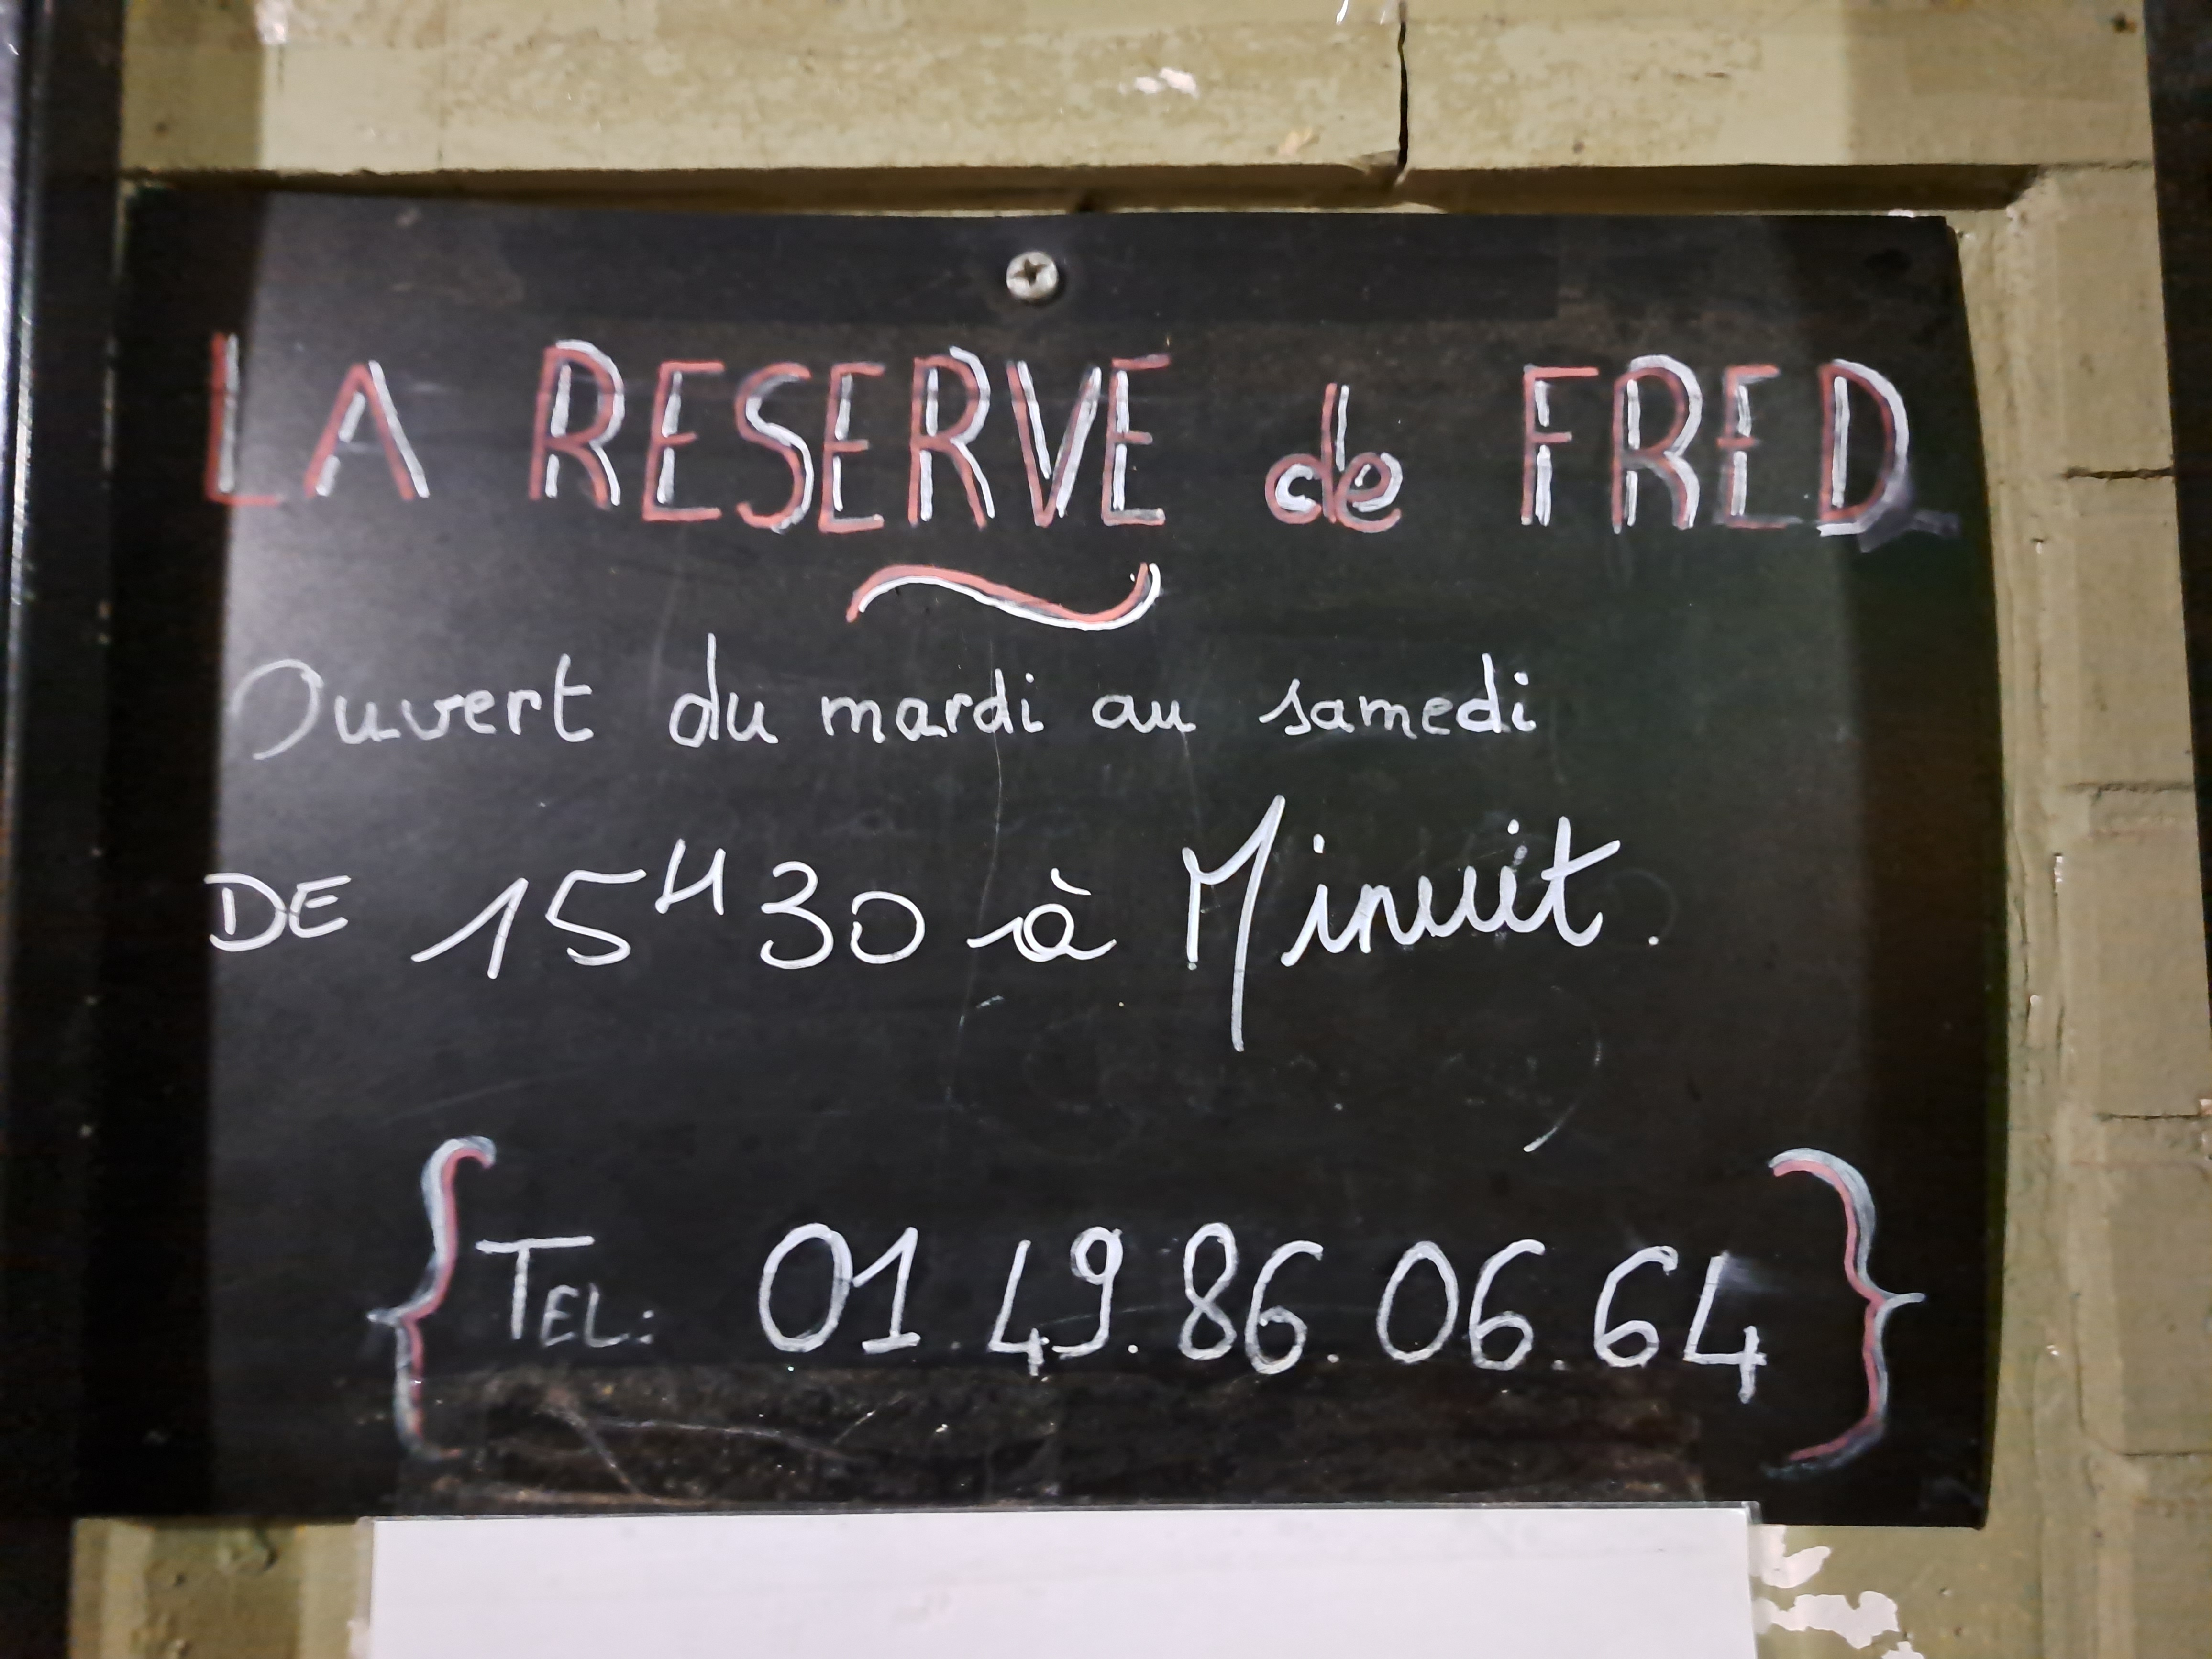 LA RESERVE de FRED
Ouvert du mardi au samedi
DE 15H30 à Minuit.
TEL: 01.49.86.06.64